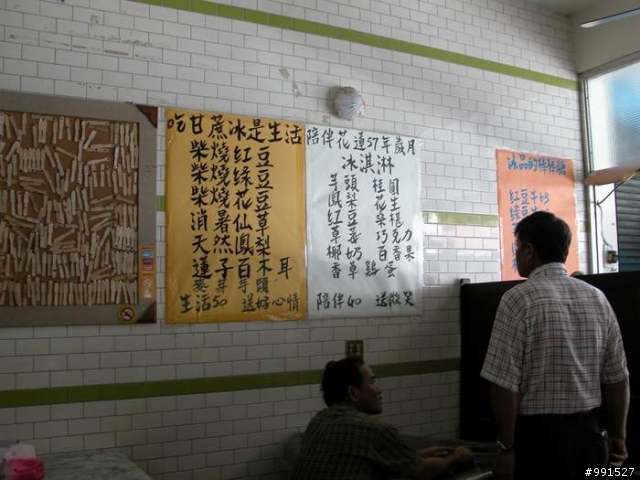 吃甘蔗冰是生活
柴燒紅豆
柴燒綠豆
柴燒花豆
消暑仙草
天然鳳梨
蓮子百木耳
生活50 送好心情
陪伴花蓮57年歲月
冰淇淋
芋頭 桂圓
鳳梨 花生
紅豆
草莓 巧克力
椰奶 百香果
香草 雞蛋
陪伴40 送微笑
紅豆牛奶
#991527